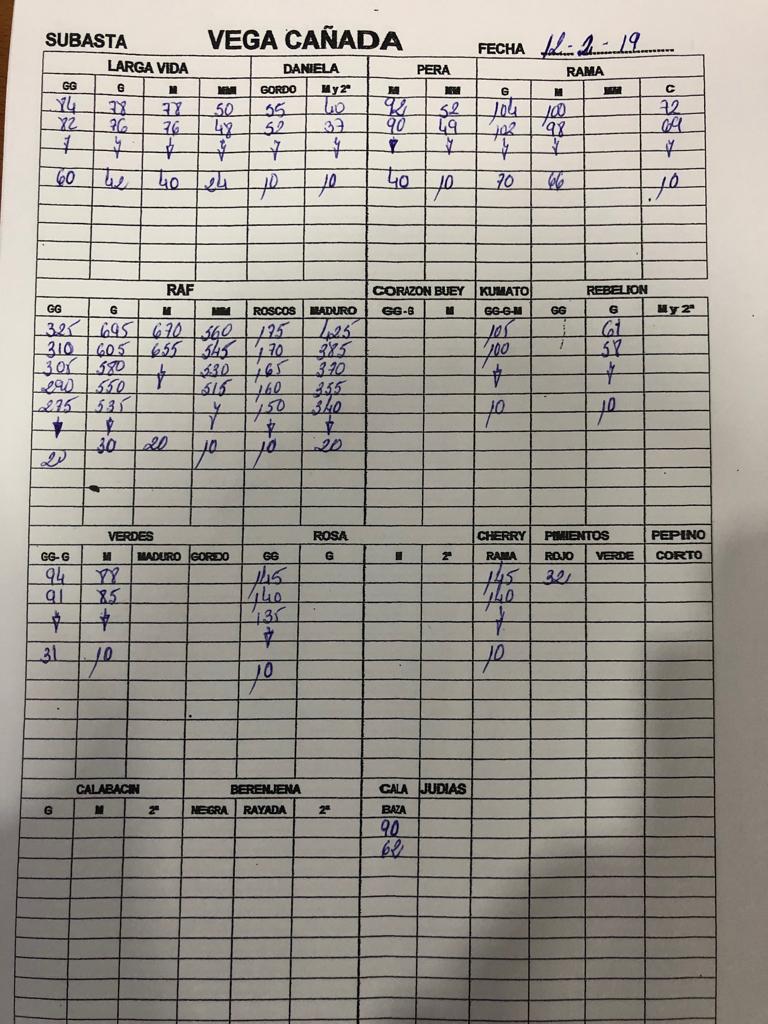 SUBASTA VEGA CAÑADA FECHA 12-2-19
LARGA VIDA DANIELA PERA RAMA
GG G M MM GORDO M y 2ª M MM G M MM C
84 78 78 50 55 40 92 52 104 100 72
82 76 76 48 52 37 90 49 102 98 69
60 42 40 24 10 10 40 10 70 66 10
RAF CORAZON BUEY KUMATO REBELION
GG G M MM ROSCOS MADURO GG-G M GG-G-M GG G M y 2ª
325 695 670 560 175 425 105 61
310 605 655 545 170 385 100 58
305 580 530 165 370
290 550 515 160 355
275 535 150 340 10 10
20 30 20 10 10 20
VERDES ROSA CHERRY PIMIENTOS PEPINO
GG-G M MADURO GORDO GG G M 2ª RAMA ROJO VERDE CORTO
94 88 145 145 321
91 85 140 140
135
31 10 10
10
CALABACIN BERENJENA CALA JUDIAS
G M 2ª NEGRA RAYADA 2ª BAZA
90
62